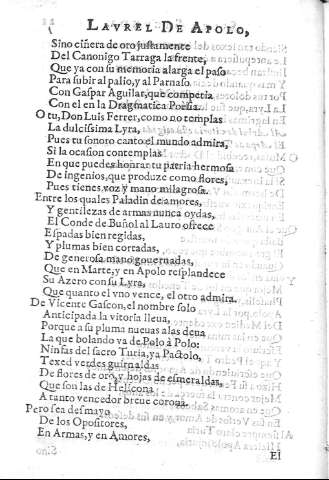 LAVREL DE APOLO,
Sino ciñera de oro justamente
Del Canonigo Tarraga la frente,
Que ya con su memoria alarga el paso
Para subir al palio, y al Parnaso
Con Gaspar Aguilar, que competia
Con el en la Dragmatica Poësia.
O tu, Don Luis Ferrer, como no templas
La dulcissima Lyra,
Pues tu sonoro canto el mundo admira,
Si la ocasion contemplas
En que puedes honrar tu patria hermosa
De ingenios, que produze como flores,
Pues tienes voz y mano milagrosa.
Entre los quales Paladin de amores,
Y gentilezas de armas nunca oydas,
El Conde de Buñol al Lauro ofrece
Espadas bien regidas,
Y plumas bien cortadas,
De generosa mano gouernadas,
Que en Marte, y en Apolo resplandece
Su Azero con su Lyra,
Que quanto el vno vence, el otro admira.
De Vicente Gascon, el nombre solo
Anticipada la vitoria lleua,
Porque a su pluma nueuas alas deua
La que bolando va de Polo à Polo:
Ninfas del sacro Turia, ya Pactolo,
Texed verdes guirnaldas
De flores de oro, y hojas de esmeraldas,
Que son las de Helicona
A tanto vencedor breue corona.
Pero sea desmayo
De los Opositores,
En Armas, y en Amores,
El